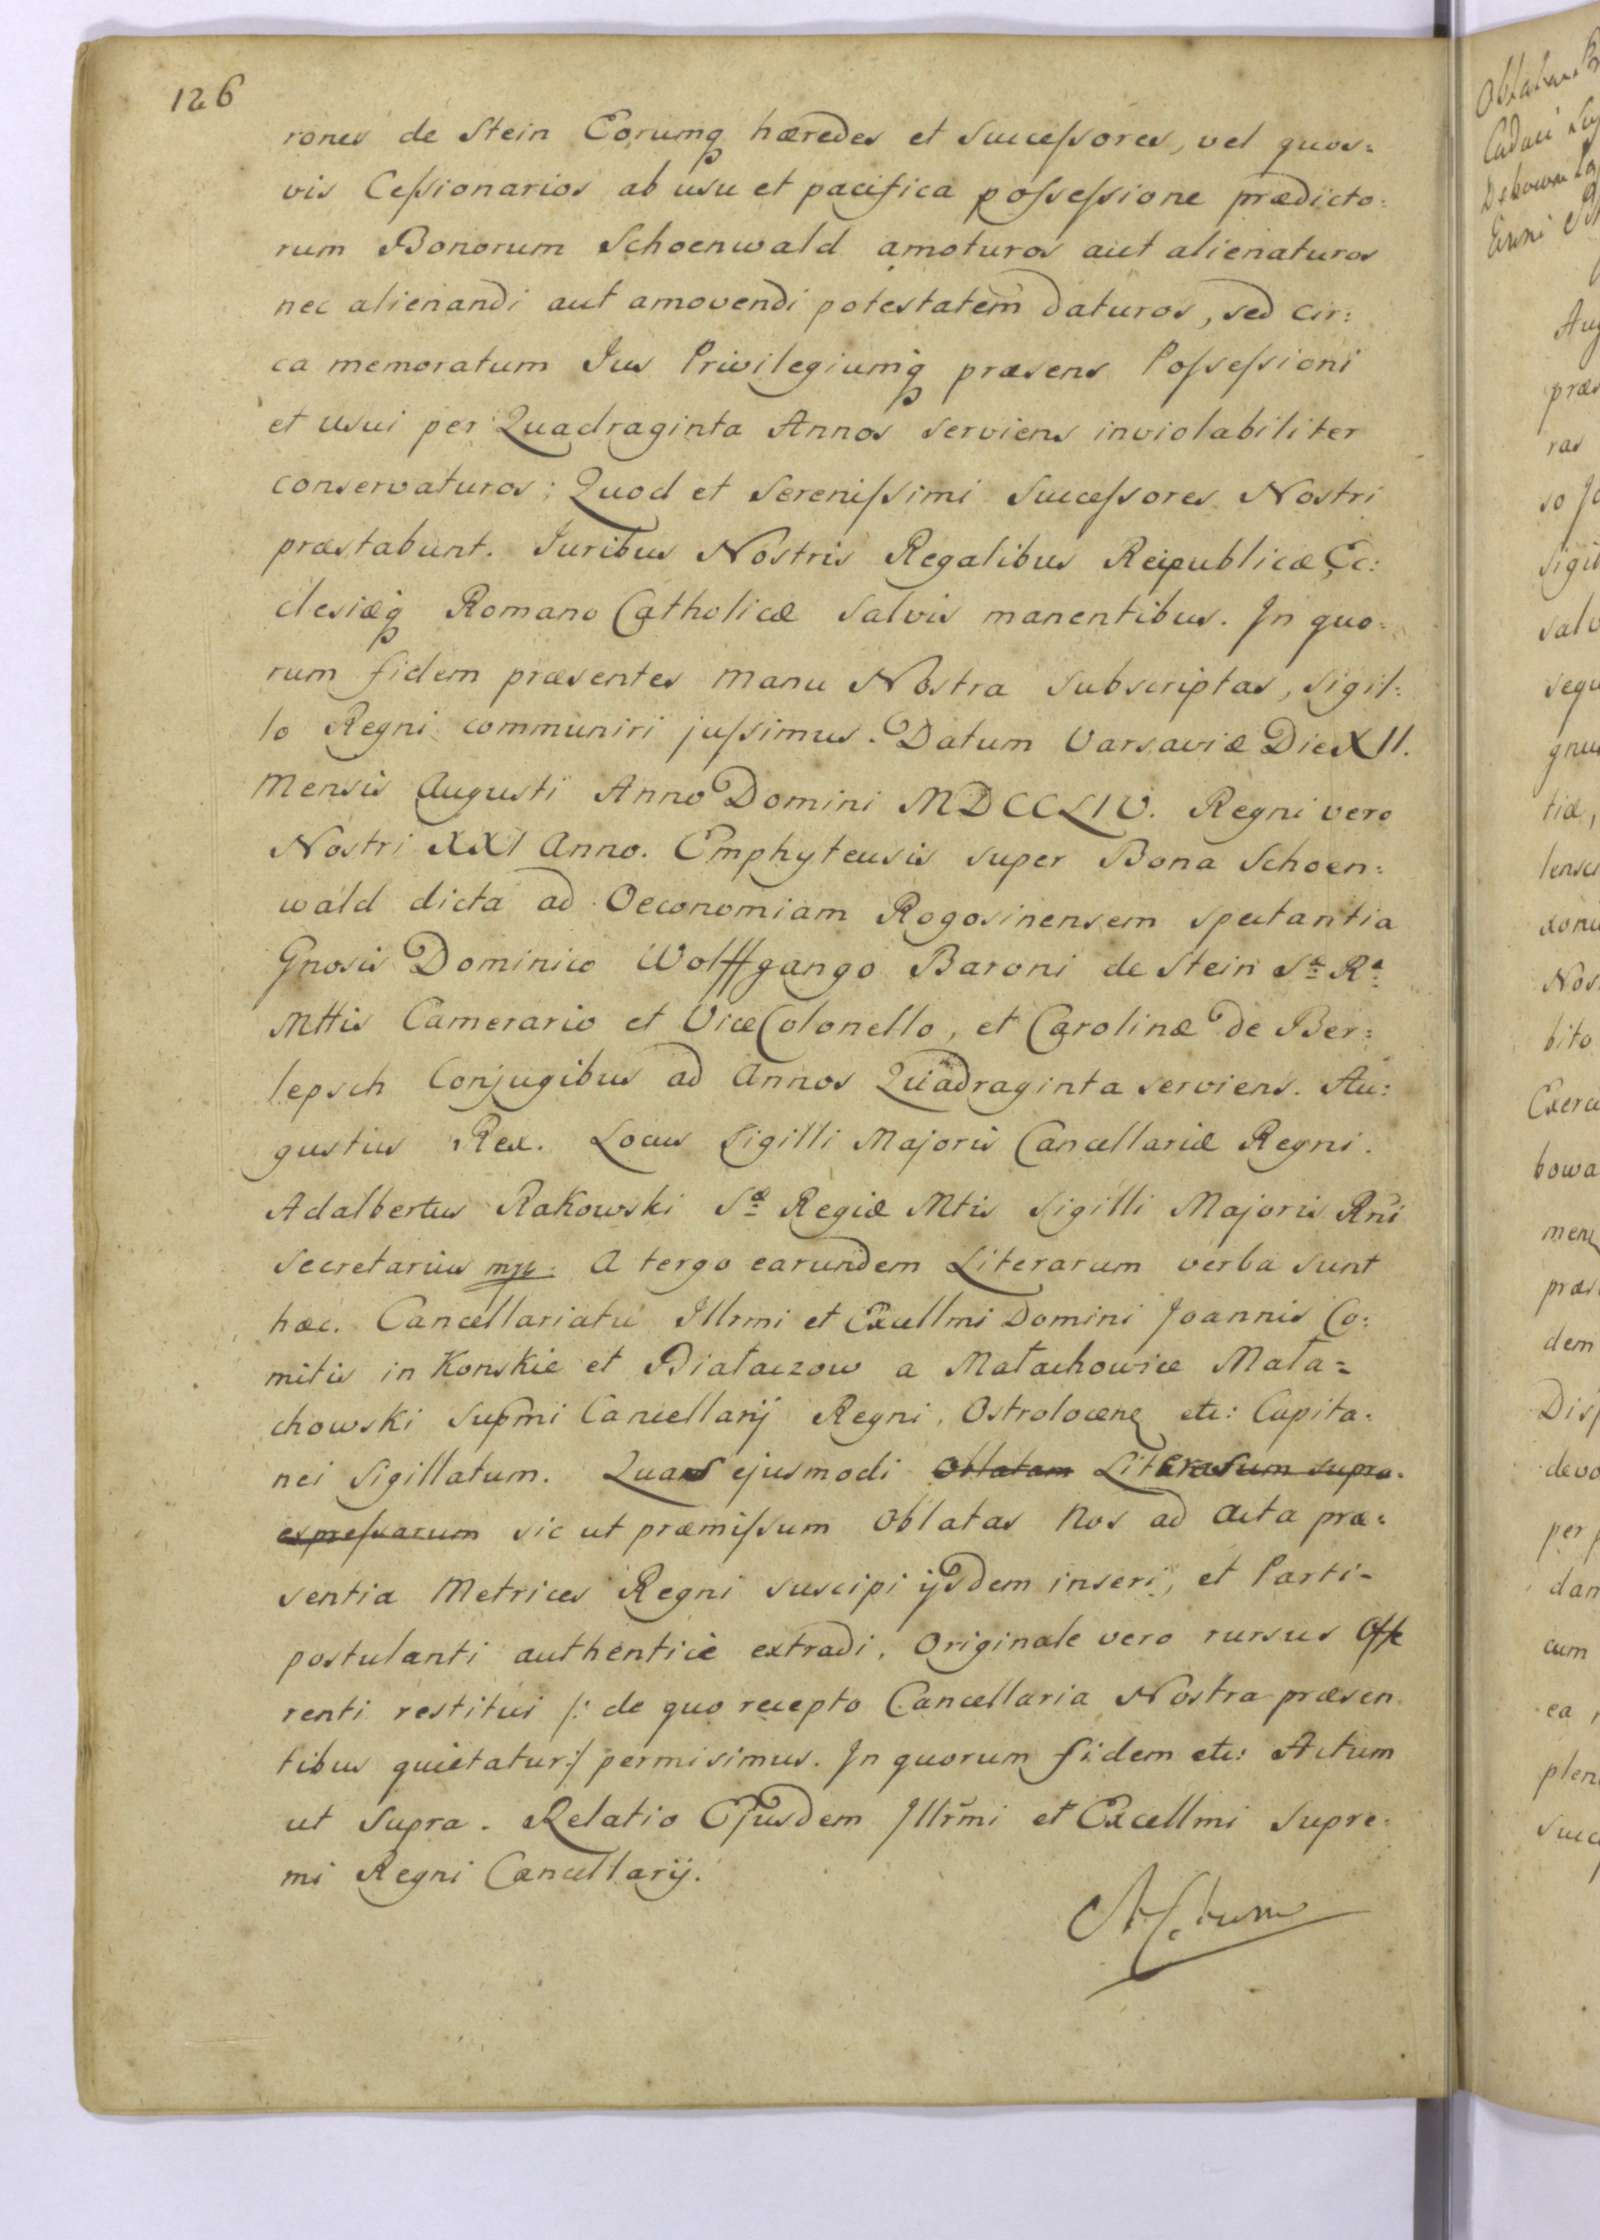 126
rones de Stein Eorumq hæredes et Succeſsores, vel quos=
vis Ceſsionarios ab usu et pacifica poſseſsione prædicto:
rum Bonorum Schoenwald amoturos aut alienaturos
nec alienandi aut amovendi potestatem daturos, sed cir:
ca memoratum Jus Privilegiumq̃ præsens Poſseſsioni
et usui per Quadraginta Annos serviens inviolabiliter
conservaturos; Quod et Sereniſsimi Succeſsores Nostri
præstabunt. Juribus Nostris Regalibus Reipublicæ Ec:
clesiæq̃ Romano Catholicæ Salvis manentibus. In quo=
rum fidem præsentes manu Nostra Subscriptas, Sigil:
lo Regni communiri juſsimus. Datum Varsaviæ Die XII.
Mensis Augusti Anno Domini MDCCLIV. Regni vero
Nostri XXI Anno. Emphyteusis super Bona Schoen:
wald dicta ad Oeconomiam Rogosinensem spectantia
Gnosis Dominico Wolffgango Baroni de Stein Sæ Ræ
Mttis Camerario et ViceColonello, et Carolinæ de Ber:
lepsch Conjugibus ad Annos Quadraginta serviens. Au:
gustus Rex. Locus Sigilli Majoris Cancellariæ Regni.
Adalbertus Rakowski Sæ Regiæ Mtis Sigilli Majoris Rni
Secretarius mpp. A tergo earundem Literarum verba sunt
hæc. Cancellariatu Illrmi et Excellmi Domini Joannis Co:
mitis in Konskie et Białaczow a Małachowice Mała=
chowski Supmi Cancellarij Regni, Ostrolocen etc: Capita=
nei Sigillatum. Quas ejusmodi Oblatam Literarum supra=
expreſsarum sic ut præmiſsum Oblatas Nos ad Acta præ=
sentia Metrices Regni suscipi ijsdem inseri, et Parti=
postulanti authenticè extradi, Originale vero rursus Offe
renti restitui /: de quo recepto Cancellaria Nostra præsen
tibus quietatur:/ permisimus. In quorum fidem etc: Actum
ut Supra. Relatio Ejusdem Illrmi et Excellmi Supre=
mi Regni Cancellarij.